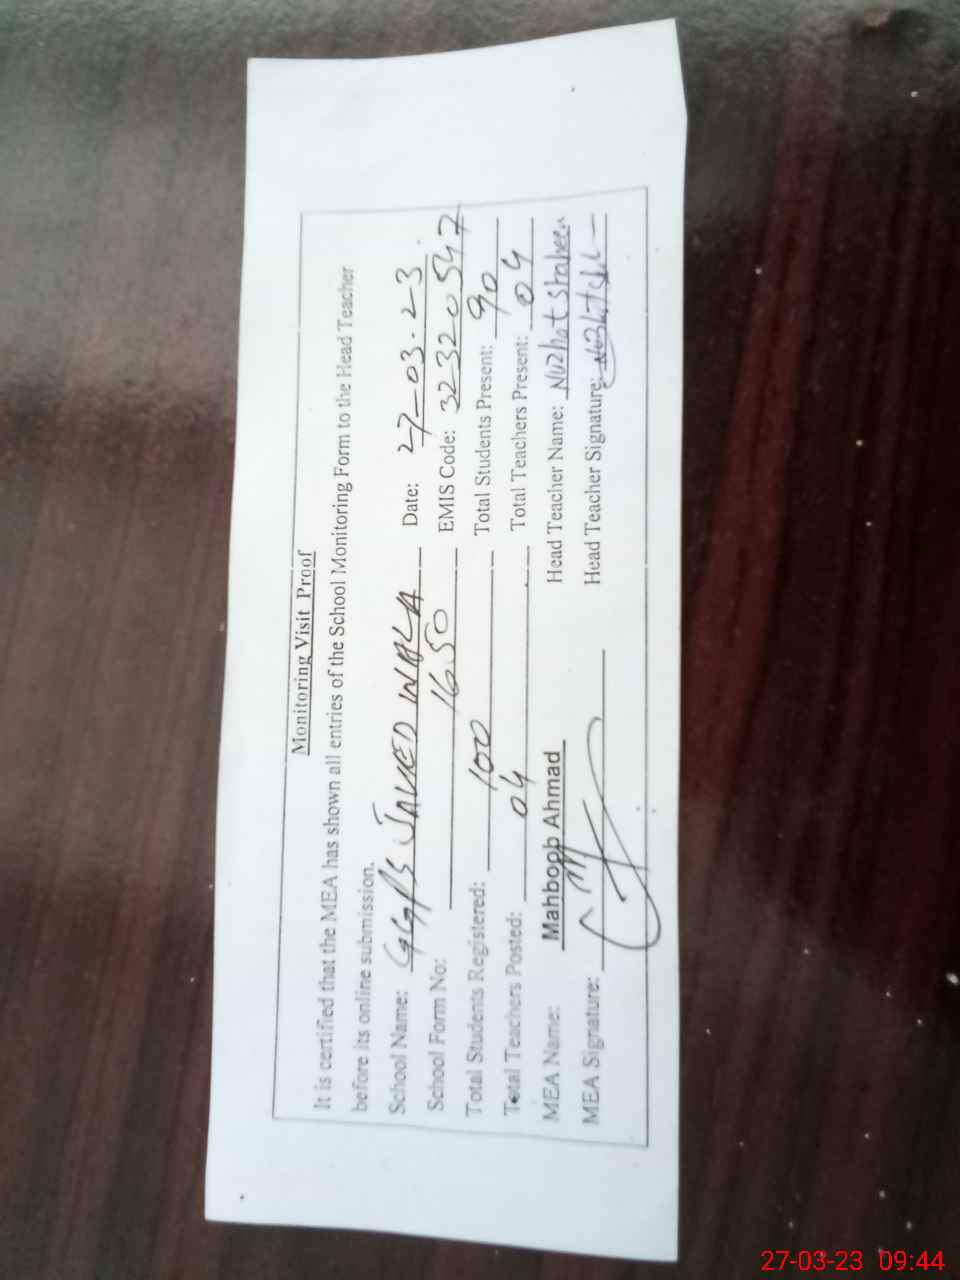 Monitoring Visit Proof
It is certified that the MEA has shown all entries of the School Monitoring Form to the Head Teacher
before its online submission.
School Name: GGPS JAVED WALA Date: 27-03-23
School Form No: 1650 EMIS Code: 32320547
Total Students Registered: 100 Total Students Present: 90
Total Teachers Posted: 04 Total Teachers Present: 04
MEA Name: Mahboob Ahmad Head Teacher Name: Nuzhat Shaheen
MEA Signature: Head Teacher Signature:
27-03-23 09:44